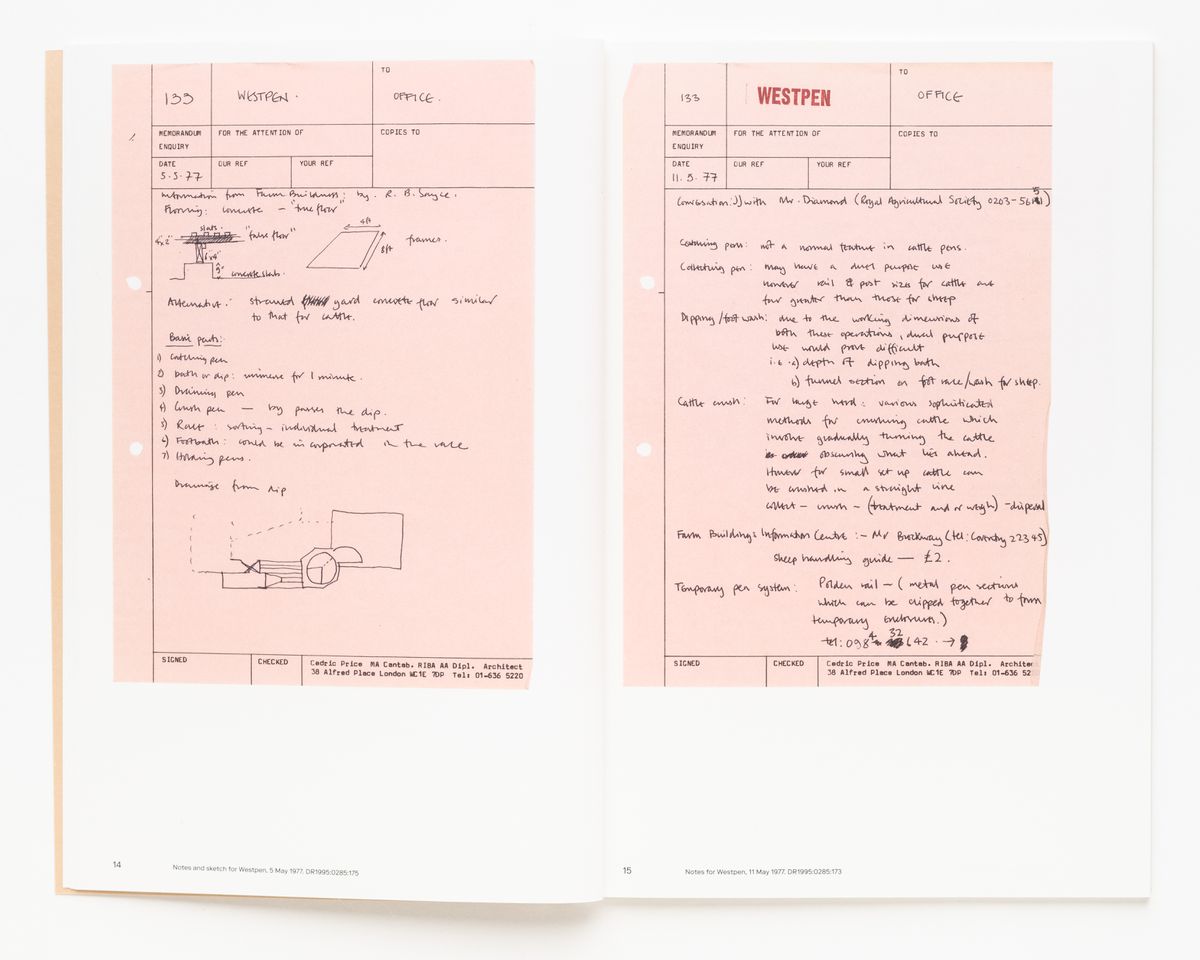 TO
133
WESTPEN.
OFFICE.
MEMORANDUM
ENQUIRY
FOR THE ATTENTION OF
COPIES TO
DATE
5.5.77
OUR REF
YOUR REF
Information from Farm Buildings: by. R. B. Sayce.
Flooring: concrete — "true floor"
slats
"false floor"
4ft
8ft
frames.
6x4"
9"
concrete slab.
Alternative: strawed yard concrete floor similar
to that for cattle.
Basic parts:
1) Catching pen
2) bath or dip: immerse for 1 minute.
3) Draining pen
4) Crush pen — by passes the dip.
5) Race: sorting - individual treatment
6) Footbath: could be incorporated in the race
7) Holding pens.
Drainage from dip
SIGNED
CHECKED
Cedric Price MA Cantab. RIBA AA Dipl. Architect
38 Alfred Place London WC1E 7DP Tel: 01-636 5220
14
Notes and sketch for Westpen, 5 May 1977. DR1995:0285:175
TO
133
WESTPEN
OFFICE
MEMORANDUM
ENQUIRY
FOR THE ATTENTION OF
COPIES TO
DATE
11.5.77
OUR REF
YOUR REF
Conversation: with Mr. Diamond (Royal Agricultural Society 0203-56
pens: not a normal feature in cattle pens.
Collecting pen: may have a dual purpose use
however rail & post sizes for cattle are
far greater than those for sheep
Dipping/foot wash: due to the working dimensions of
both these operations, dual purpose
use would prove difficult
i.e. a) depth of dipping bath
b) funnel section on foot race/wash for sheep.
Cattle crush: For large herd: various sophisticated
methods for crushing cattle which
involve gradually turning the cattle
obscuring what lies ahead.
However for small set up cattle can
be crushed in a straight line
collect - crush - (treatment and or weigh) - dispersal
Farm Buildings Information Centre:- Mr Brockway (tel: Coventry 22345)
sheep handling guide — £2.
Temporary pen system: Polden rail - (metal pen sections
which can be clipped together to form
temporary enclosures.)
tel: 0984 32 642 →
SIGNED
CHECKED
Cedric Price MA Cantab. RIBA AA Dipl. Architec
38 Alfred Place London WC1E 7DP Tel: 01-636 52
15
Notes for Westpen, 11 May 1977. DR1995:0285:173